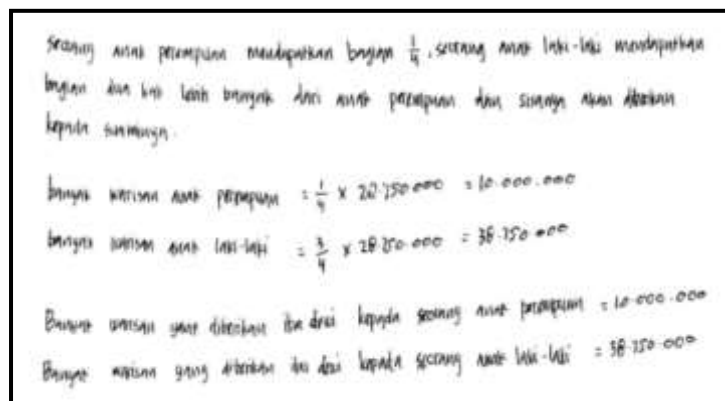 seorang anak perempuan mendapatkan bagian 1/4, seorang anak laki-laki mendapatkan
bagian dua kali lebih banyak dari anak perempuan dan sisanya akan diberikan
kepada suaminya.
banyak warisan anak perempuan = 1/4 × 28.750.000 = 10.000.000
banyak warisan anak laki-laki = 3/4 × 28.750.000 = 38.750.000
Banyak warisan yang diberikan ibu dewi kepada seorang anak perempuan = 10.000.000
Banyak warisan yang diberikan ibu dewi kepada seorang anak laki-laki = 38.750.000